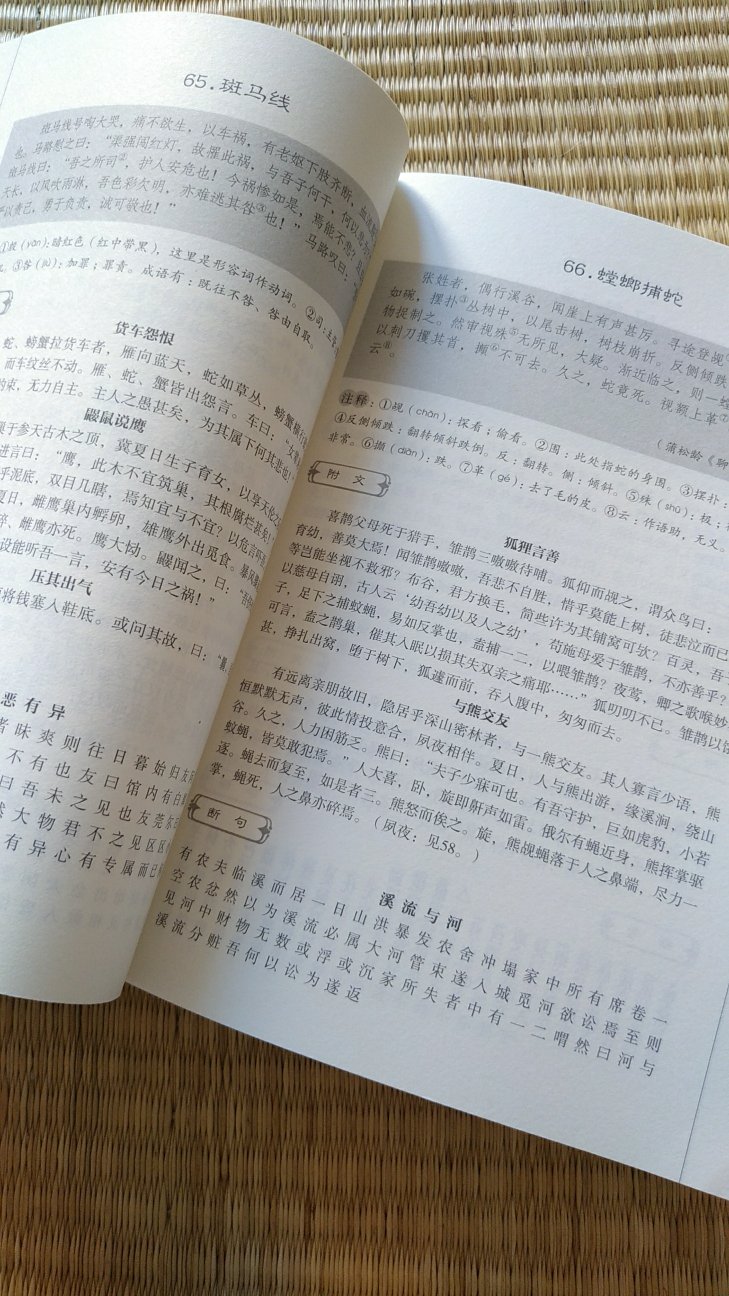 65.斑马线
斑马线号啕大哭，痛不欲生，以车祸，有老妪下肢齐断，血
也。马路慰之曰：“渠强闯红灯，故罹此祸，与吾子何干，何以悲
斑马线曰：“吾之所司②，护人安危也！今祸惨如是，焉能不悲？
天长，以风吹雨淋，吾色彩欠明，亦难逃其咎③也！”马路叹曰：
严以责己，勇于负责，诚可敬也！”
①殷（yān）：暗红色（红中带黑），这里是形容词作动词。②司：主
③咎（jiù）：加罪；罪责。成语有：既往不咎、咎由自取。
货车怨恨
蛇、螃蟹拉货车者，雁向蓝天，蛇如草丛，螃蟹横
而车纹丝不动。雁、蛇、蟹皆出怨言。车曰：“
约束，无力自主。主人之愚甚矣，为其属下何其悲也
鼹鼠说鹰
于参天古木之顶，冀夏日生子育女，以享天伦之
进言曰：“鹰，此木不宜筑巢，其根腐烂甚矣！
乎泥底，双目几瞎，焉知宜与不宜？以危言
夏日，雌鹰巢内孵卵，雄鹰外出觅食。暴风
碎，雌鹰亦死。鹰大恸。鼹闻之，曰：“
设能听吾一言，安有今日之祸！”
压其出气
将钱塞入鞋底。或问其故，曰：“
恶有异
者味爽则往日暮始归友
不有也友曰馆内有白
曰吾未之见也友莞尔
然大物君不之见区区
有异心有专属而已
66.螳螂捕蛇
张姓者，偶行溪谷，闻崖上有声甚厉。寻途登觇
如碗，摆扑④丛树中，以尾击树，树枝崩折。反侧倾跌
物捉制之。然审视殊⑤无所见，大疑。渐近临之，则一螳
以刺刀攫其首，攧⑥不可去。久之，蛇竟死。视额上革⑦
云⑧。
（蒲松龄《聊
注释：①觇（chān）：探看；偷看。②围：此处指蛇的身围。③摆扑：
④反侧倾跌：翻转倾斜跌倒。反：翻转。侧：倾斜。⑤殊（shū）：极；
非常。⑥攧（diān）：跌。⑦革（gé）：去了毛的皮。⑧云：作语助，无义。
附文
狐狸言善
喜鹊父母死于猎手，雏鹊三嗷嗷待哺。狐仰而觇之，谓众鸟曰：
育幼，善莫大焉！闻雏鹊嗷嗷，吾悲不自胜，惜乎莫能上树，徒悲泣而已
等岂能坐视不救邪？布谷，君方换毛，简些许为其铺窝可欤？百灵，吾
以慈母自诩，古人云‘幼吾幼以及人之幼’，苟施母爱于雏鹊，不亦善乎？
子，足下之捕蚊蝇，易如反掌也，盍捕一二，以喂雏鹊？夜莺，卿之歌喉妙
可言，盍之鹊巢，催其人眠以损其失双亲之痛耶……”狐叨叨不已。雏鹊以饿
甚，挣扎出窝，堕于树下，狐遽而前，吞入腹中，匆匆而去。
与熊交友
有远离亲朋故旧，隐居乎深山密林者，与一熊交友。其人寡言少语，熊
恒默默无声，彼此情投意合，夙夜相伴。夏日，人与熊出游，缘溪涧，绕山
谷。久之，人力困筋乏。熊曰：“夫子少寐可也。有吾守护，巨如虎豹，小若
蚊蝇，皆莫敢犯焉。”人大喜，卧，旋即鼾声如雷。俄尔有蝇近身，熊挥掌驱
逐。蝇去而复至，如是者三。熊怒而俟之。旋，熊觇蝇落于人之鼻端，尽力一
掌，蝇死，人之鼻亦碎焉。（夙夜：见58。）
断句
溪流与河
有农夫临溪而居一日山洪暴发农舍冲塌家中所有席卷一
空农忿然以为溪流必属大河管束遂人城觅河欲讼焉至则
见河中财物无数或浮或沉家所失者中有一二喟然曰河与
溪流分赃吾何以讼为遂返